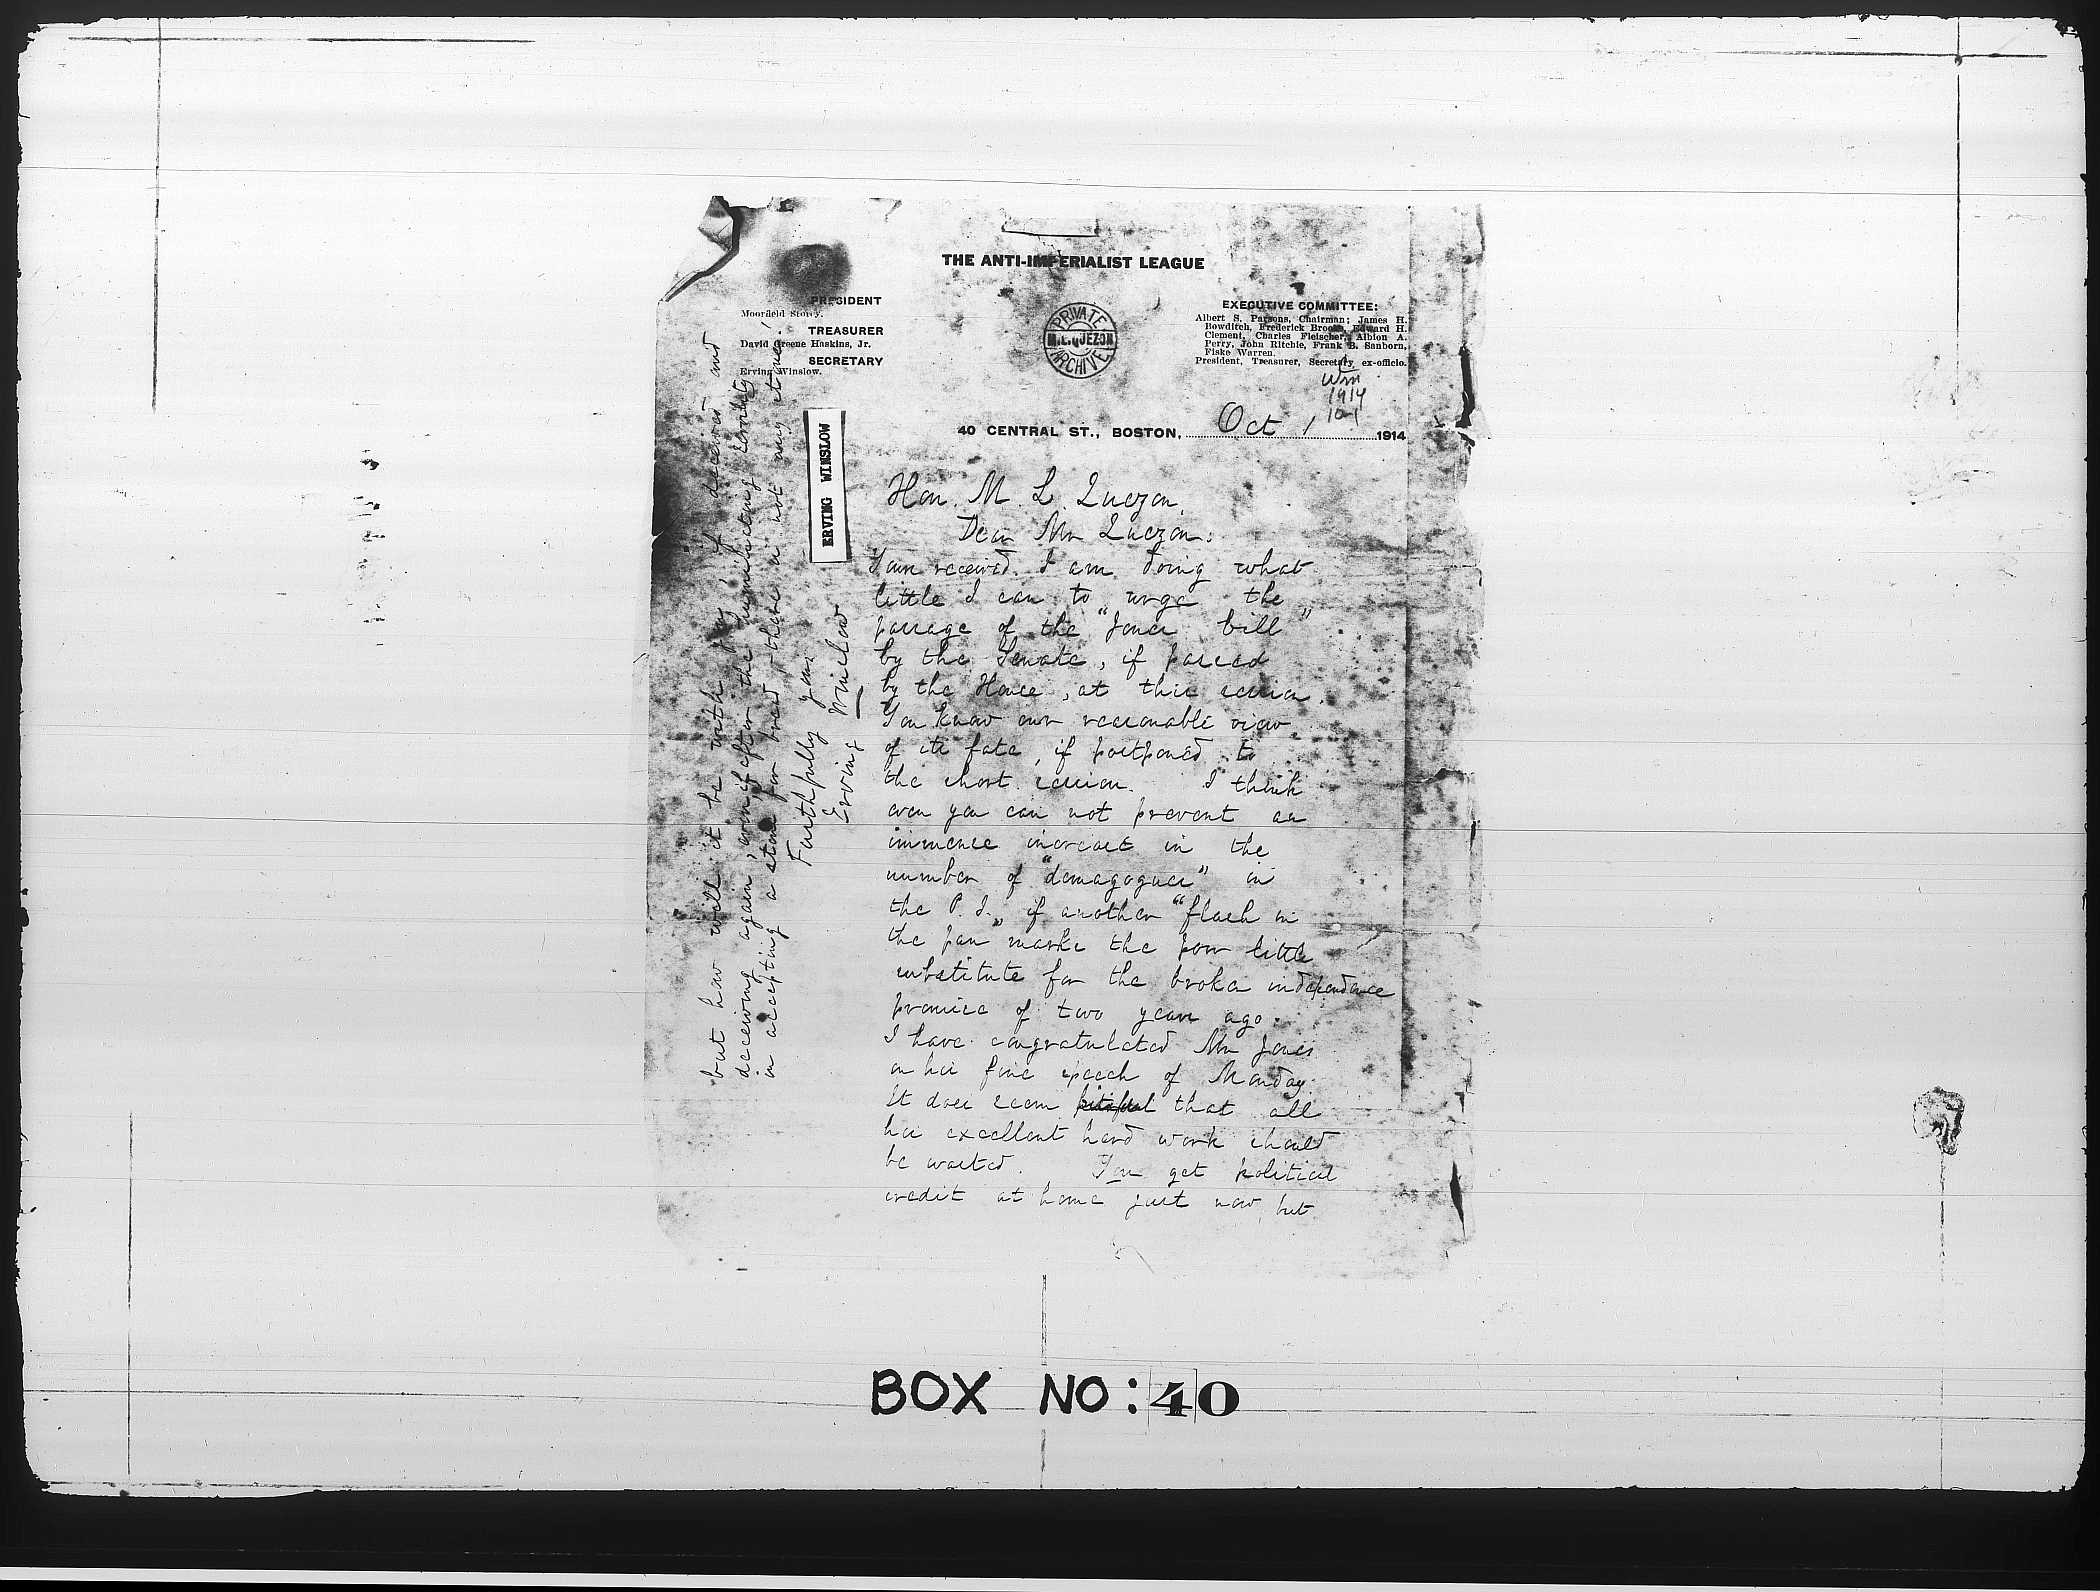 THE ANTI-IMPERIALIST LEAGUE
PRESIDENT
Moorfield Storey.
TREASURER
David Greene Haskins, Jr.
SECRETARY
Erving Winslow.
PRIVATE
M.L.QUEZON
ARCHIVE
EXECUTIVE COMMITTEE:
Albert S. Parsons, Chairman; James H.
Bowditch, Frederick Brooks, Edward H.
Clement, Charles Fleischer, Albion A.
Perry, John Ritchie, Frank B. Sanborn,
Fiske Warren.
President, Treasurer, Secretary, ex-officio.
Wm
1914
10-1
40 CENTRAL ST., BOSTON, Oct 1 1914
ERVING WINSLOW
Hon. M. L. Quezon,
Dear Mr Quezon:
Yours received. I am doing what
little I can to urge the
passage of the "Jones bill"
by the Senate, if passed
by the House, at this session.
You know our reasonable view
of its fate, if postponed to
the short session. I think
even you can not prevent an
immense increase in the
number of "demagogues" in
the P. I., if another "flash in
the pan" marks the poor little
substitute for the broken independence
promise of two years ago.
I have congratulated Mr Jones
on his fine speech of Monday.
It does seem pitiful that all
his excellent hard work should
be wasted. You get political
credit at home just now, but
but how will it be with you if deceived and
deceiving again, even if after the humiliating
in accepting a stone for bread, there is not any stone!
Faithfully yours
Erving Winslow
BOX NO: 40